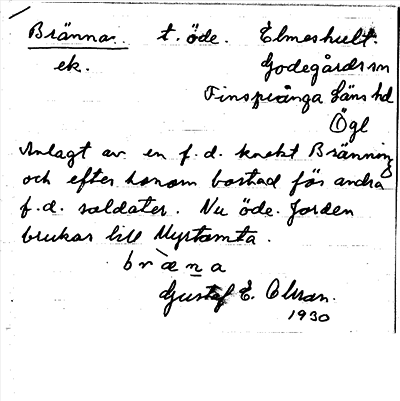 Bränna. t. öde. Elmeshult.
ek. Godegårds sn
Finspånga läns hd
Ögl
Anlagt av en f. d. knekt Bränning
och efter honom bostad för andra
f. d. soldater. Nu öde. Jorden
brukas till Myrtomta.
bràṉa
Gustaf E. Olsson.
1930